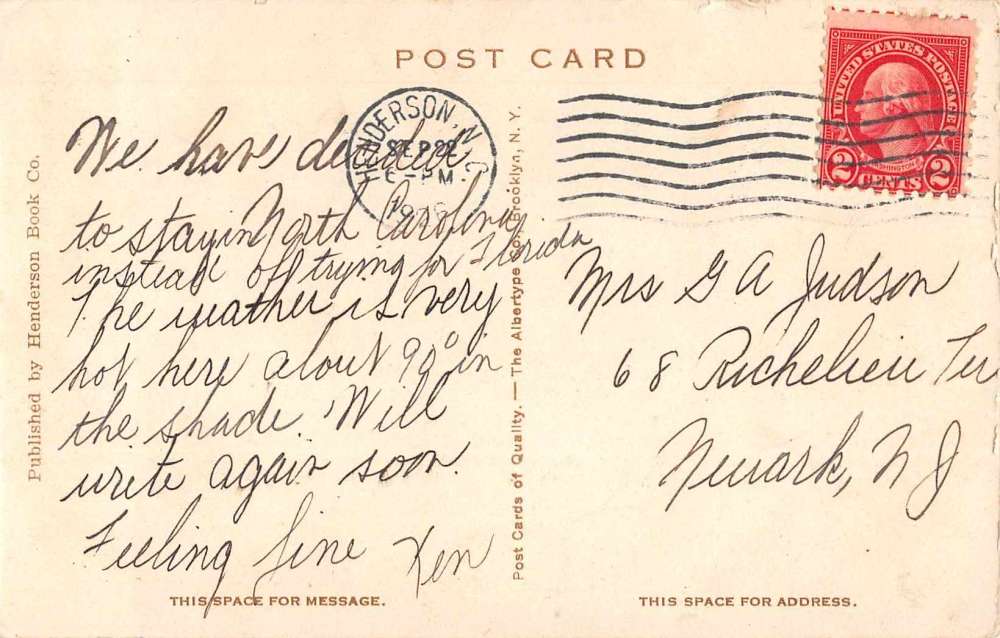 POST CARD
Published by Henderson Book Co.
We have decided
to stay in North Carolina
instead of trying for Florida
The weather is very
hot here about 90° in
the shade. Will
write again soon.
Feeling fine Ken
THIS SPACE FOR MESSAGE.
Post Cards of Quality. — The Albertype Co. Brooklyn, N. Y.
HENDERSON, N. C.
SEP 22
PM.
UNITED STATES POSTAGE
WASHINGTON
2 CENTS 2
Mrs G A Judson
68 Richelieu Ter
Newark, N J
THIS SPACE FOR ADDRESS.